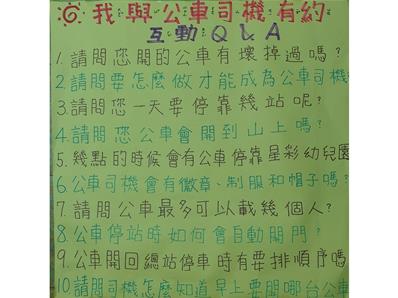 我與公車司機有約
互動Q&A
1.請問您開的公車有壞掉過嗎?
2.請問要怎麼做才能成為公車司機
3.請問您一天要停靠幾站呢?
4.請問您公車會開到山上嗎?
5.幾點的時候會有公車停靠星彩幼兒園
6.公車司機會有徽章、制服和帽子嗎?
7.請問公車最多可以載幾個人?
8.公車停站時如何會自動開門?
9.公車開回總站停車時有要排順序嗎
10請問司機怎麼知道早上要開哪台公車